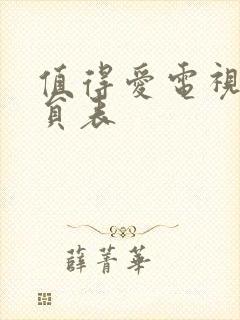 值得愛電視
頁表
薛菁華